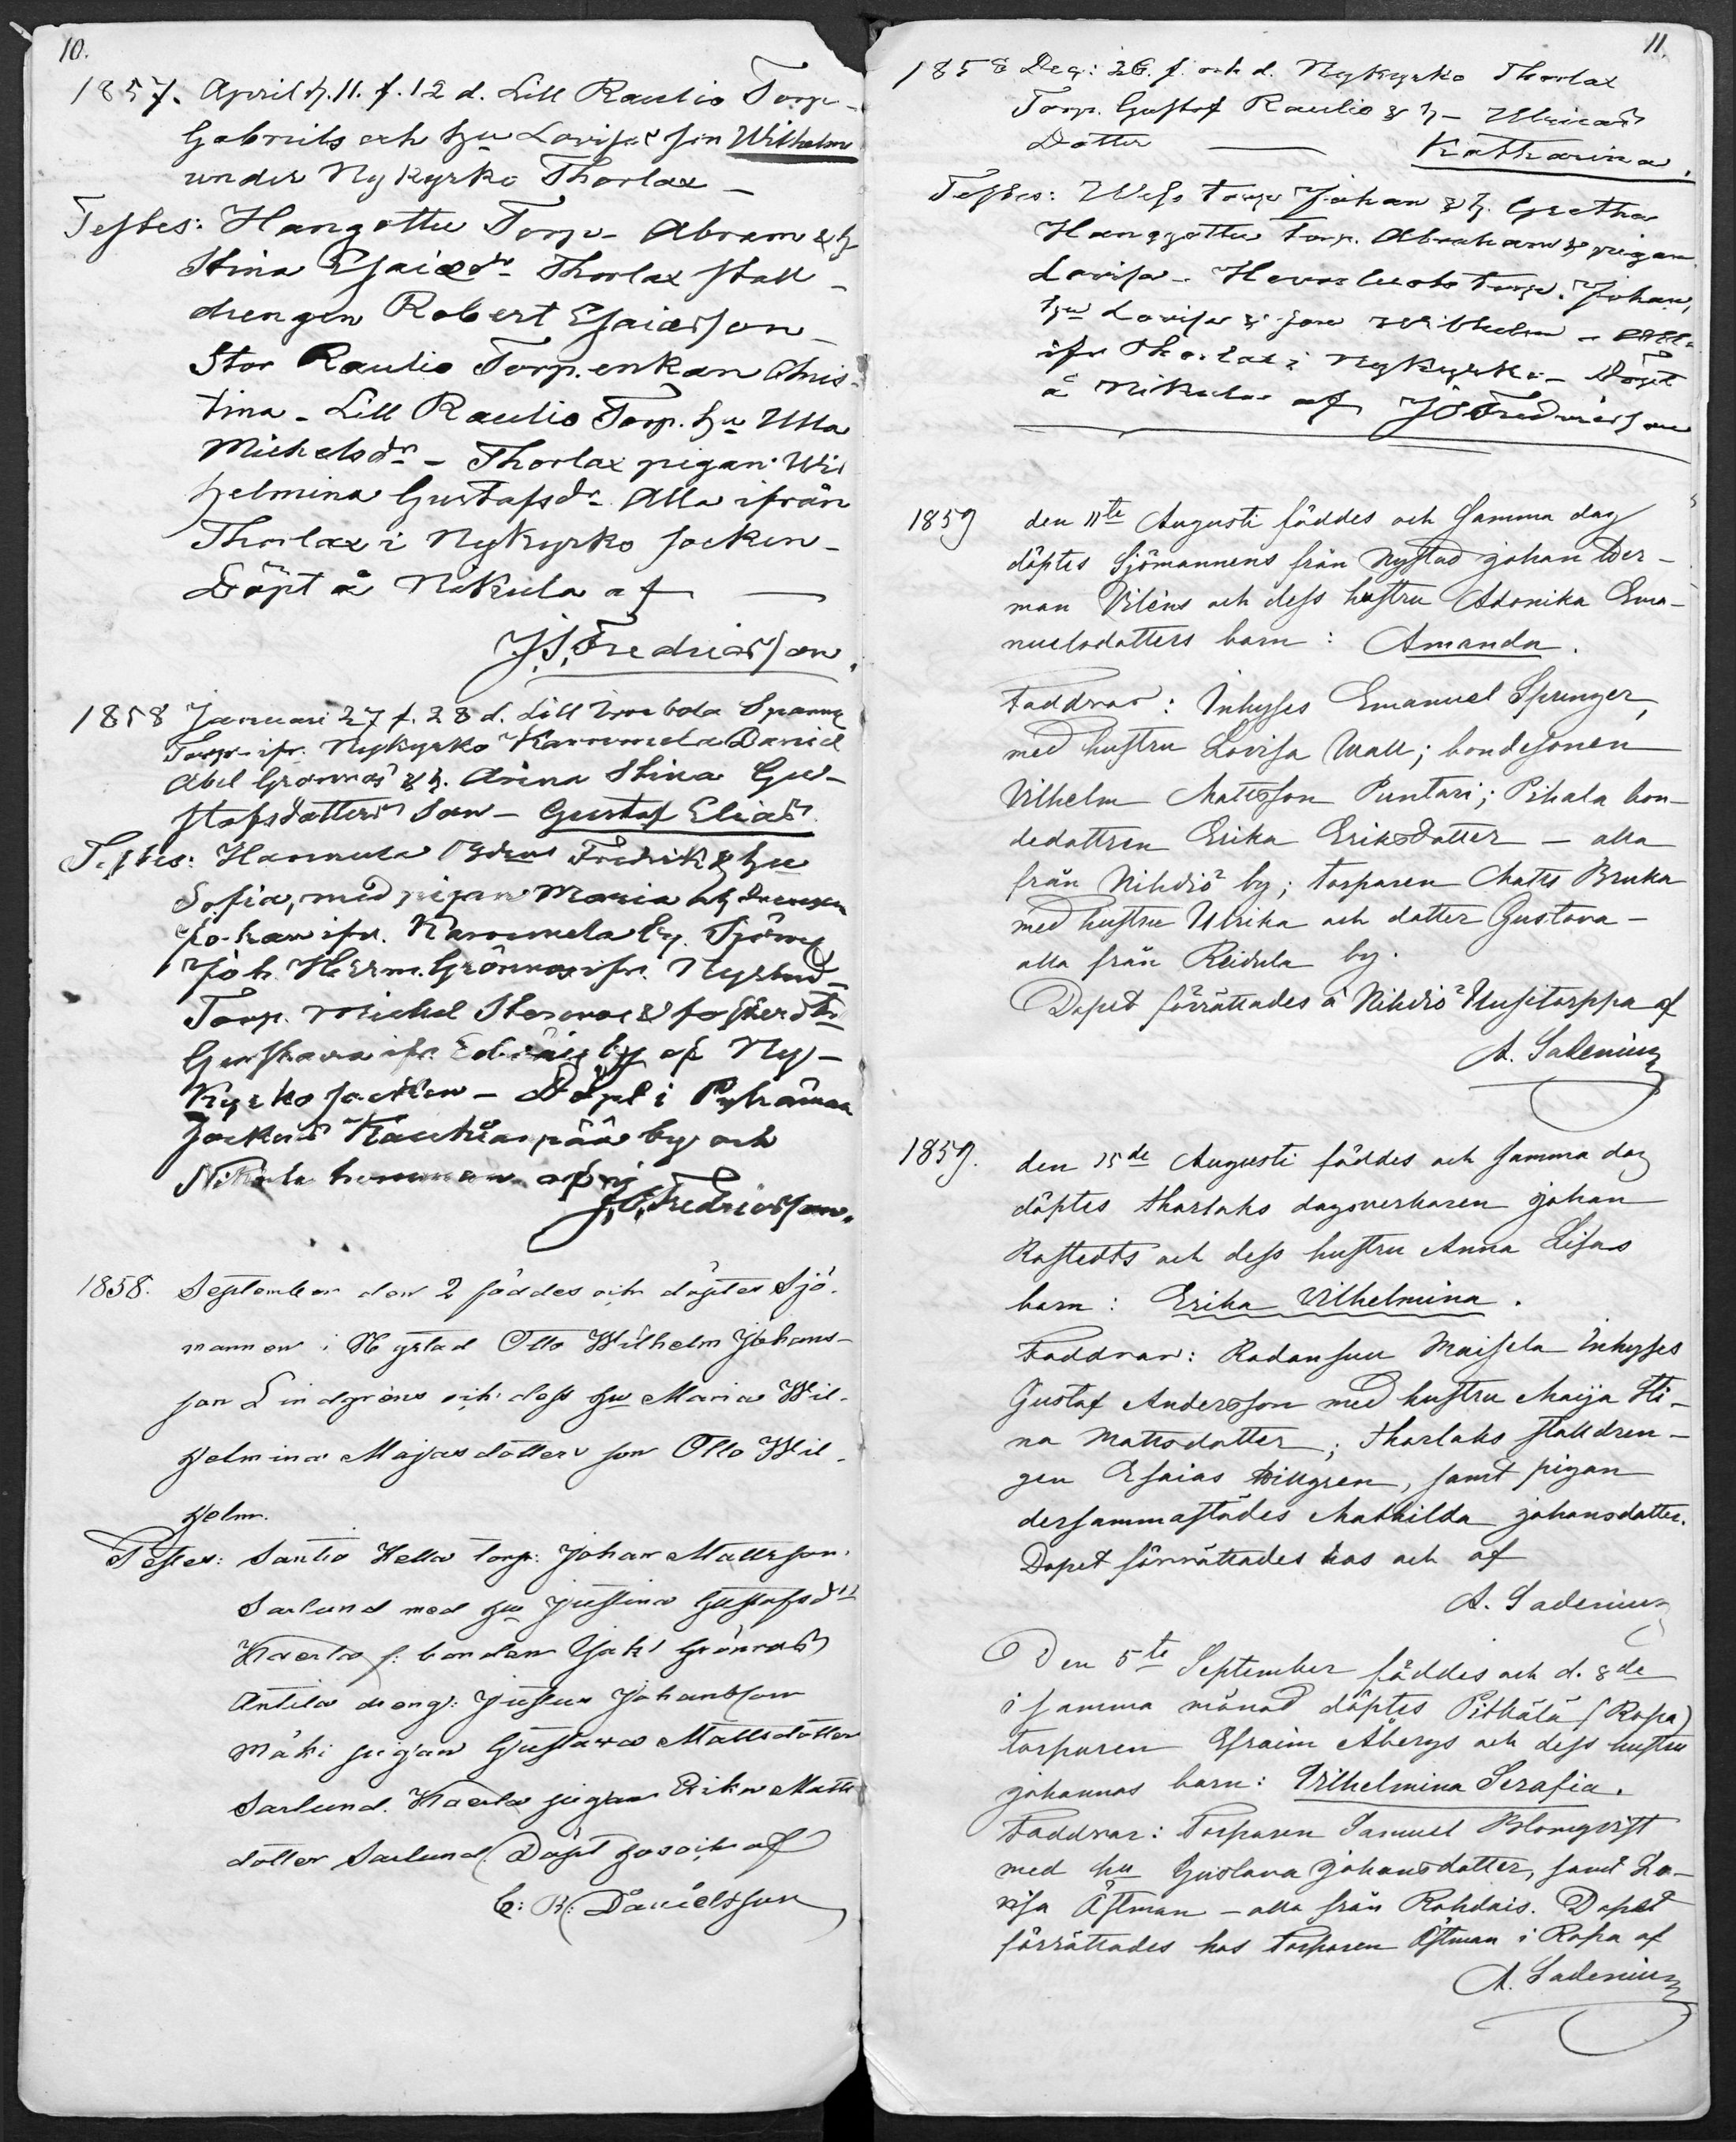 10.
1857. April d. 11. f. 12 d. Lill Raulio Torp-
Gabriels och hu Lovisas son Wilhelm
under Nykyrko Thorlax –
Testes: Hangottu Torp- Abram & h
Stina Esaiæ dr Thorlax stall-
drengen Robert Esaiæsson –
Stor Raulio Torp.enkan Chris-
tina – Lill Raulio Torp. hu Ulla
Michelsdr – Thorlax pigan Wil
helmina Gustafsdr. Alla ifrån
Thorlax i Nykyrko socken –
Döpt å Nikula af —
J.S. Fredricsson.
1858 Januari 27 f. 28 d. Lill
Torp- ifr. Nykyrko Kammela Daniel
Abel Grönroos & h. Anna Stina Gu-
stafsdotters Son – Gustaf Elias
Testes: Hannula Fredrik & hu
Sofia, med pigan Maria drengen
Johan ifr. Kammela by. Sjöm
Joh. Herm. Grönroos ifr. Nystad –
Torp. Michel & fosterdtr
Gustava ifr. by af Ny-
kyrko socken – Döpt i Pyhämaa
sockens Kaukianpää by och
Nikula hemman af
J.S. Fredricsson.
1858. September den 2 föddes och döptes Sjö-
mannen i Nystad Otto Wilhelm Johans-
son Lindgréns och dess hu Maria Wil-
helmina Majasdotters son Otto Wil-
helm.
Testes: Santio Kella torp: Johan Mattsson
Sarlund med hu Justina Gustafsdtr
Kaerla f: bonden Jak: Grönroos
Antila dreng: Justus Johansson
Mäki pigan Gustava Mattsdotter
Sarlund. Kaerla pigan Erika Matts
dotter Sarlund. Döpt hos och af
C: R: Danielsson
11.
1858 Dec: 26. f. och d. Nykyrko Thorlax
Torp. Gustaf Raulio & h – Ulricas
Dotter — Katharina.
Testes: Torp Johan & h. Gretha
Hanggottu Torp. Abraham & pigan
Lovisa – Torp. Johan,
hu Lovisa & son Wilhelm – alla
ifr Thorlax i Nykyrko – Döpt
å Nikula af JS Fredricsson
1859 den 11te Augusti föddes och samma dag
döptes Sjömannens från Nystad Johan Her-
man Viléns och dess hustru Adonika Ema-
nuelsdotters barn: Amanda.
Faddrar: Inhyses Emanuel Springer,
med hustru Lovisa Wall; bondesonen
Vilhelm Mattsson Puntari; Pihala bon-
dedottren Erika Eriksdotter – alla
från Nihdiö by; torparen Matts Bruka
med hustru Ulrika och dotter Gustava –
alla från Reidula by.
Dopet förrättades å Nihdiö Uusitorppa af
A. Sadenius
1859. den 15de Augusti föddes och samma dag
döptes Tharlaks dagsverkaren Johan
Rostedts och dess hustru Anna Lisas
barn: Erika Vilhelmina.
Faddrar: Radansuu Maisela Inhyses
Gustaf Andersson med hustru Maija Sti-
na Mattsdotter; Tharlaks stalldren-
gen Esaias Willgren, samt pigan
dersammastädes Mathilda Johansdotter.
Dopet förrättades hos och af
A. Sadenius
Den 5te September föddes och d. 8de
i samma månad döptes Pitkälä (Ropa)
torparen Efraim Åbergs och dess hustru
Johannas barn: Vilhelmina Serafia.
Faddrar: Torparen Samuel Blomqvist
med hu Gustava Johansdotter, samt Lo-
visa Östman – alla från Rohdais. Dopet
förrättades hos Torparen Östman i Ropa af
A. Sadenius